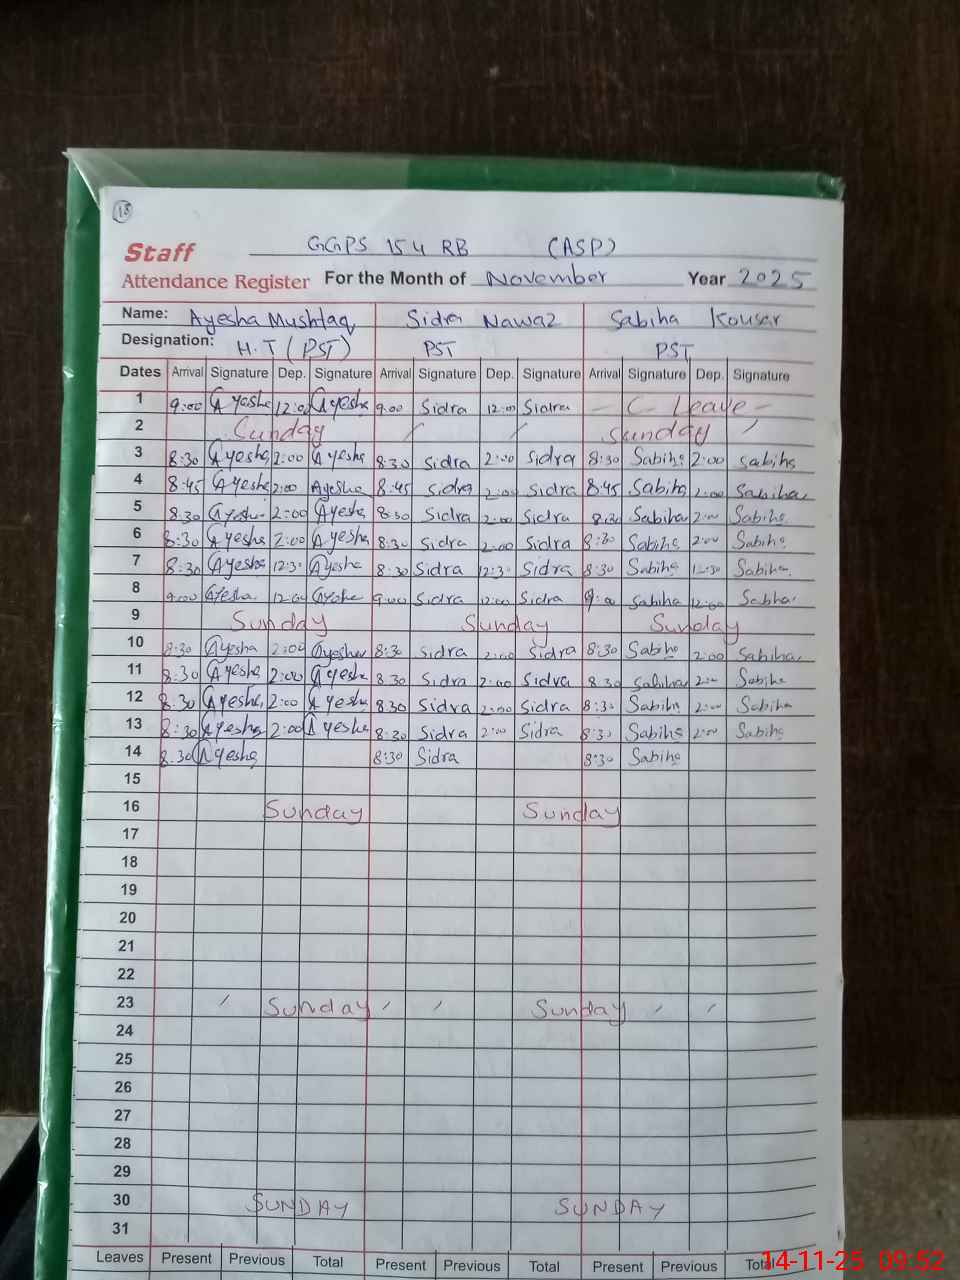 18
Staff GGPS 154 RB (ASP)
Attendance Register For the Month of November Year 2025
Name: Ayesha Mushtaq Sidra Nawaz Sabiha Kousar
Designation: H.T (PST) PST PST
Dates Arrival Signature Dep. Signature Arrival Signature Dep. Signature Arrival Signature Dep. Signature
1 9:00 Ayesha 12:00 Ayesha 9:00 Sidra 12:00 Sidra - C Leave -
2 Sunday Sunday
3 8:30 Ayesha 2:00 Ayesha 8:30 Sidra 2:00 Sidra 8:30 Sabiha 2:00 Sabiha
4 8:45 Ayesha 2:00 Ayesha 8:45 Sidra 2:00 Sidra 8:45 Sabiha 2:00 Sabiha
5 8:30 Ayesha 2:00 Ayesha 8:30 Sidra 2:00 Sidra 8:30 Sabiha 2:00 Sabiha
6 8:30 Ayesha 2:00 Ayesha 8:30 Sidra 2:00 Sidra 8:30 Sabiha 2:00 Sabiha
7 8:30 Ayesha 12:30 Ayesha 8:30 Sidra 12:30 Sidra 8:30 Sabiha 12:30 Sabiha
8 9:00 Ayesha 12:00 Ayesha 9:00 Sidra 12:00 Sidra 9:00 Sabiha 12:00 Sabiha
9 Sunday Sunday Sunday
10 8:30 Ayesha 2:00 Ayesha 8:30 Sidra 2:00 Sidra 8:30 Sabiha 2:00 Sabiha
11 8:30 Ayesha 2:00 Ayesha 8:30 Sidra 2:00 Sidra 8:30 Sabiha 2:00 Sabiha
12 8:30 Ayesha 2:00 Ayesha 8:30 Sidra 2:00 Sidra 8:30 Sabiha 2:00 Sabiha
13 8:30 Ayesha 2:00 Ayesha 8:30 Sidra 2:00 Sidra 8:30 Sabiha 2:00 Sabiha
14 8:30 Ayesha 8:30 Sidra 8:30 Sabiha
15
16 Sunday Sunday
17
18
19
20
21
22
23 Sunday Sunday
24
25
26
27
28
29
30 SUNDAY SUNDAY
31
Leaves Present Previous Total Present Previous Total Present Previous Total
14-11-25 09:52